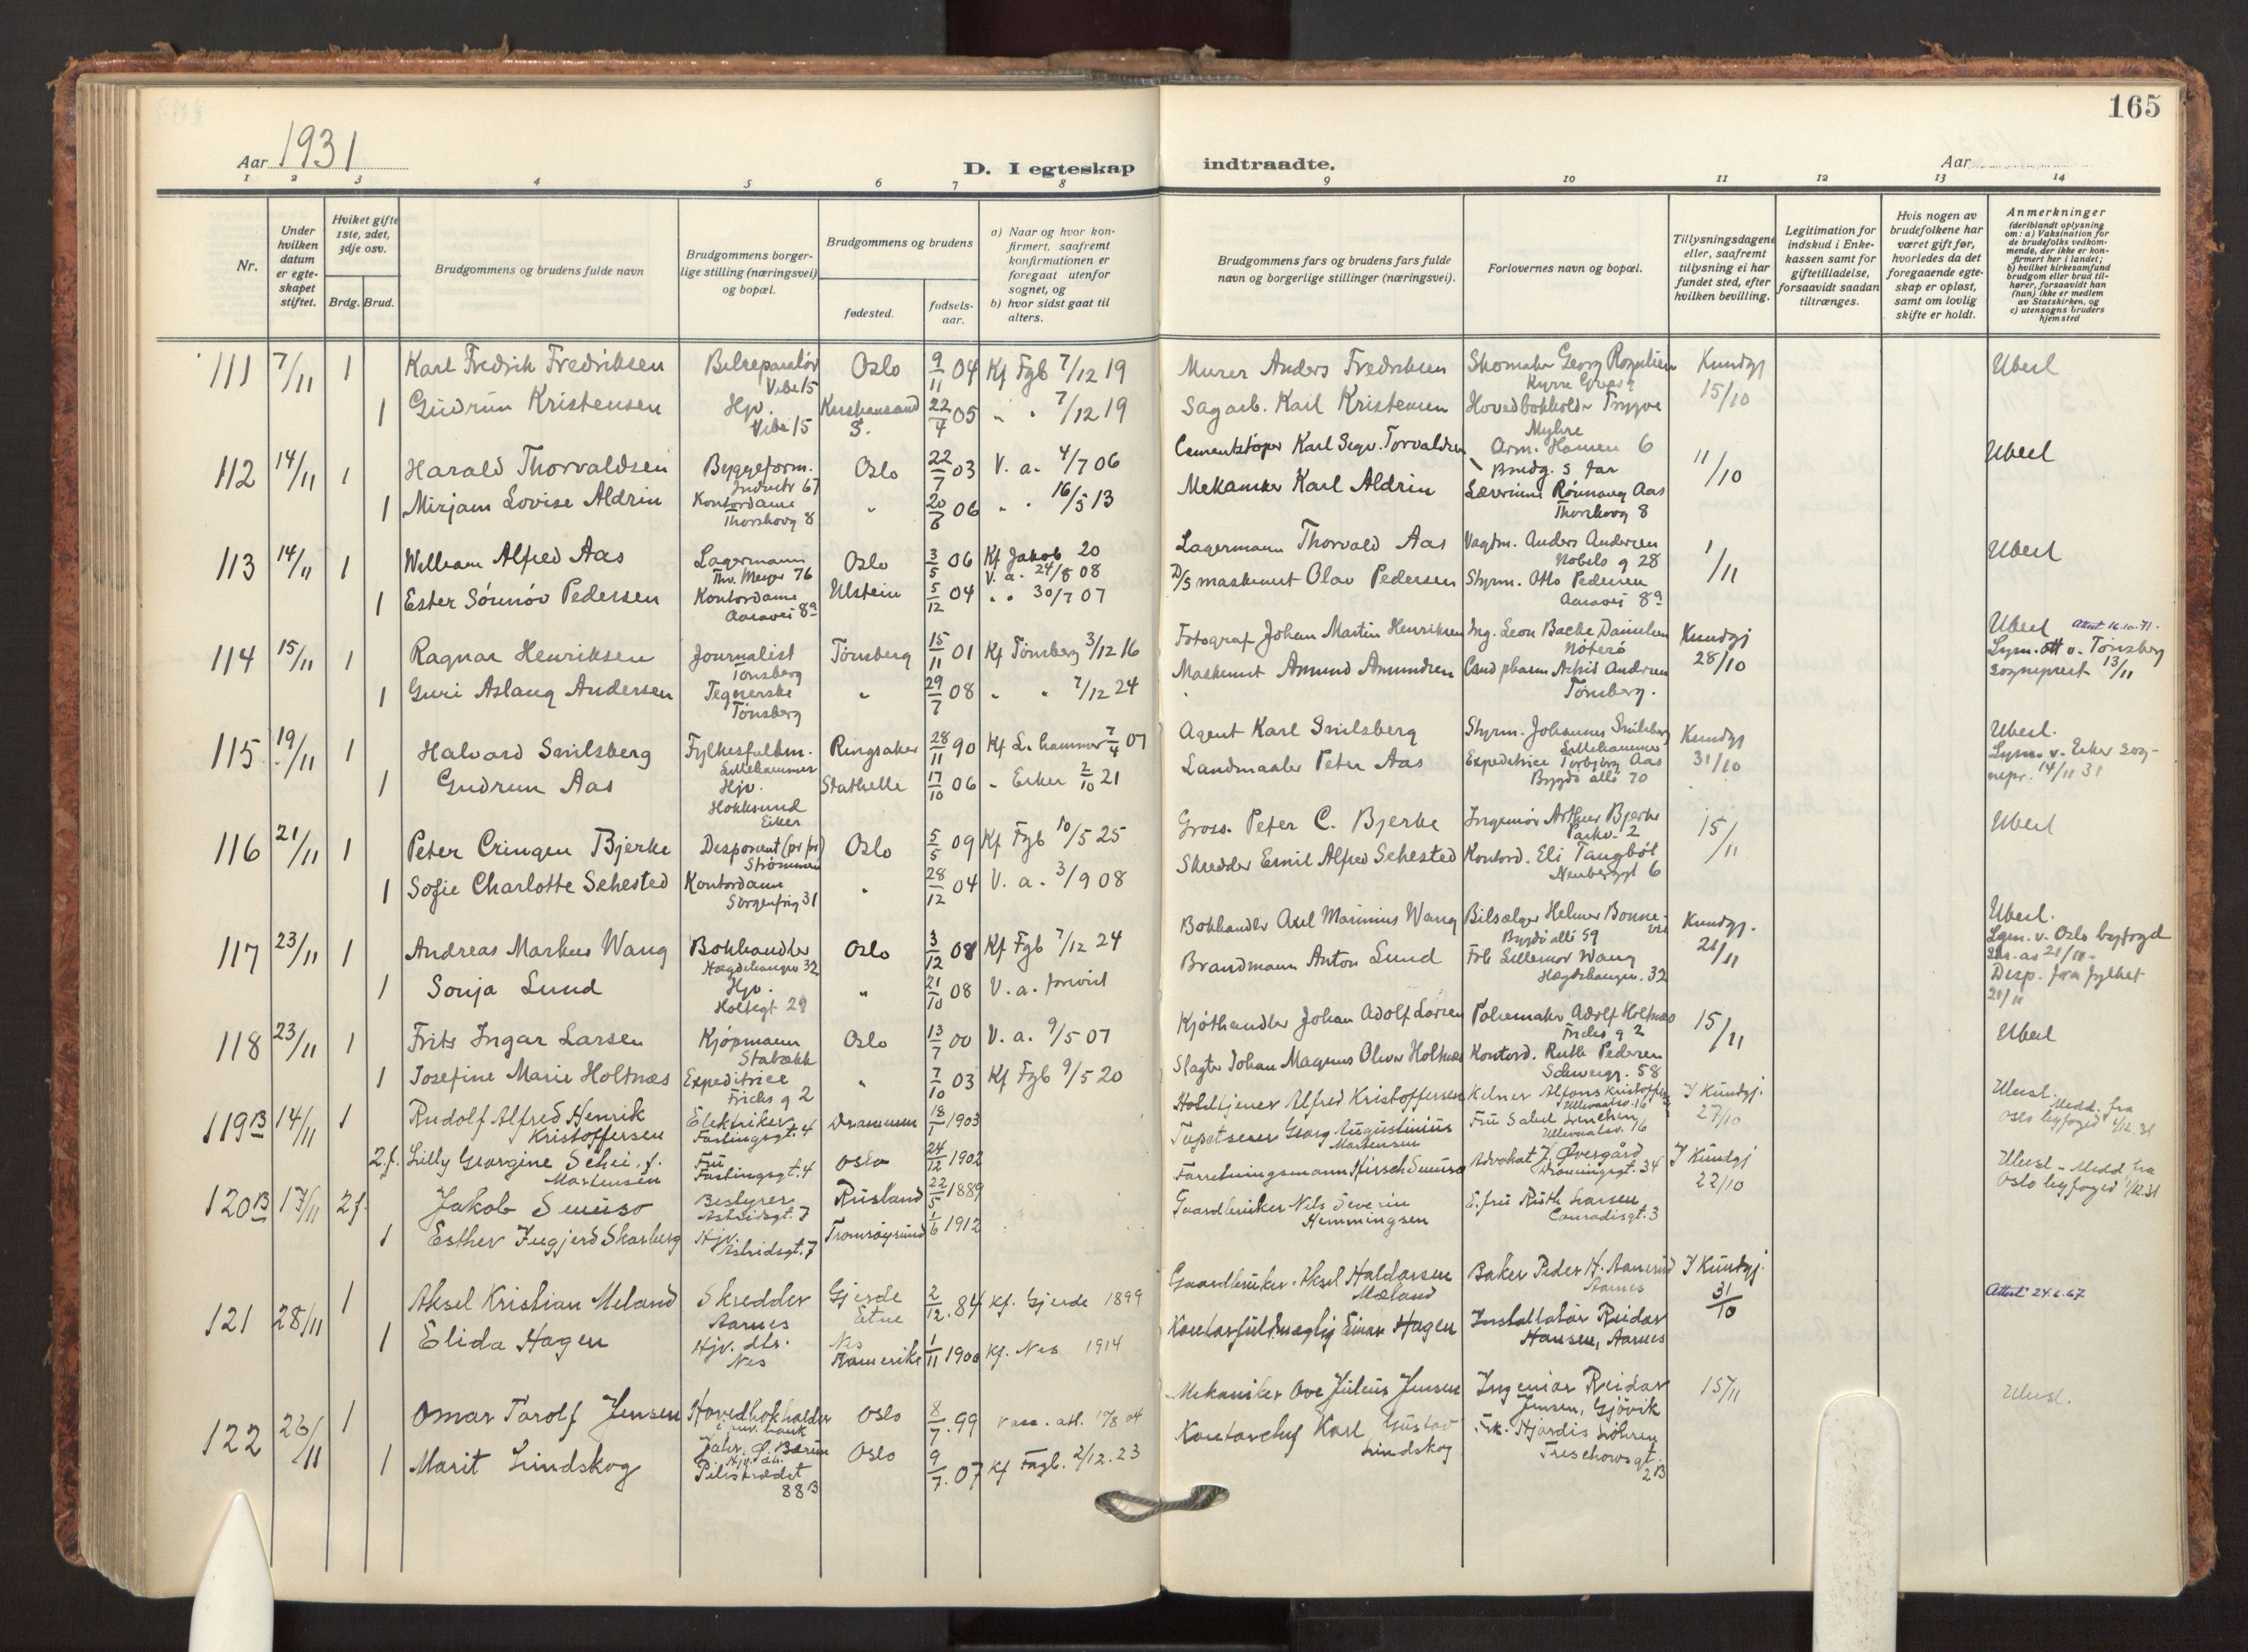 165
Aar 1931
D. I egteskap indtraadte.
Aar
1 2 3 4 5 6 7 8 9 10 11 12 13 14
Nr.
Under hvilken datum er egteskapet stiftet.
Hviket gifte 1ste, 2det, 3dje osv.
Brdg. Brud.
Brudgommens og brudens fulde navn
Brudgommens borgerlige stilling (næringsvei) og bopæl.
Brudgommens og brudens
fødested.
fødselsaar.
a) Naar og hvor konfirmert, saafremt konfirmationen er foregaat utenfor sognet, og
b) hvor sidst gaat til alters.
Brudgommens fars og brudens fars fulde navn og borgerlige stillinger (næringsvei).
Forlovernes navn og bopæl.
Tillysningsdagene eller, saafremt tillysning ei har fundet sted, efter hvilken bevilling.
Legitimation for indskud i Enkekassen samt for giftetilladelse, forsaavidt saadan tiltrænges.
Hvis nogen av brudefolkene har været gift før, hvorledes da det foregaaende egteskap er opløst, samt om lovlig skifte er holdt.
Anmerkninger (deriblandt oplysning om: a) Vaksination for de brudefolks vedkommende, der ikke er konfirmert her i landet; b) hvilket kirkesamfund brudgom eller brud tilhører, forsaavidt han (hun) ikke er medlem av Statskirken, og c) utensogns bruders hjemsted
111 7/11 1 Karl Fredrik Fredriksen Bilreparatør Vibe 15 Oslo 9/11 04 Kf Fgb 7/12 19 Murer Anders Fredriksen Skomaker Georg Kundgj 15/10
1 Gudrun Kristensen Hjv. Vibe 15 Kristiansand S. 22/4 05 " " 7/12 19 Sagarb. Karl Kristensen Hovedbokholder Trygve Myhre
112 14/11 1 Harald Thorvaldsen Byggeform. Industr 67 Oslo 22/7 03 V. a. 4/7 06 Cementstøper Karl Sigv. Torvaldsen Arm. Hansen 6 Brudg. s far 11/10
1 Mirjam Lovise Aldrin Kontordame Thorshovg 8 " 20/6 06 " " 16/5 13 Mekaniker Karl Aldrin Rønnaug Aas Thorshovg 8
113 14/11 1 William Alfred Aas Lagermann Thv. Meyer 76 Oslo 3/5 06 Kf Jakob 20 V. a. 24/8 08 Lagermann Thorvald Aas Vagtm. Anders Andersen Nobels g 28 1/11
1 Ester Sønnøv Pedersen Kontordame Aasavei 8a Ulstein 5/12 04 " " 30/7 07 D/S maskinist Olav Pedersen Styrm. Otto Pedersen Aasavei 8a
114 15/11 1 Ragnar Henriksen Journalist Tønsberg Tønsberg 15/11 01 Kf Tønsberg 3/12 16 Fotograf Johan Martin Henriksen Ing. Leon Backe Danielsen Nøterø Kundgj 28/10 Attest 16.10.71.
1 Guri Aslaug Andersen Tegnerske Tønsberg " 29/7 08 " " 7/12 24 Maskinist Amund Amundsen Cand pharm Andersen Tønsberg. Lysn. att v. Tønsberg sogneprest 13/11
115 19/11 1 Halvard Smilsberg Fylkesfullm. Lillehammer Ringsaker 28/11 90 Kf L. hammer 7/4 07 Agent Karl Smilsberg Styrm. Johannes Smilsberg Lillehammer Kundgj 31/10
1 Gudrun Aas Hjv. Hokksund Eiker Stathelle 17/10 06 " Eiker 2/10 21 Landmaaler Peter Aas Expeditrice Torbjørg Aas Bygdø allé 70 Lysn. v. Eiker sognepr. 14/11 31
116 21/11 1 Peter Cringen Bjerke Disponent (pr pr) Strømmen Oslo 5/5 09 Kf Fgb 10/5 25 Gross. Peter C. Bjerke Ingeniør Arthur Bjerke Parkv. 2 15/11
1 Sofie Charlotte Sehested Kontordame Sorgenfrig 31 " 28/12 04 V. a. 3/9 08 Skredder Emil Alfred Sehested Kontord. Eli Tangbøl Neuberggt 6
117 23/11 1 Andreas Markus Wang Bokhandler Hægdehaugsv 32 Oslo 3/12 08 Kf Fgb 7/12 24 Bokhandler Axel Marinius Wang Bilsælger Helmer Bonnevie Bygdø allé 59 Kundgj. 21/11
1 Sonja Lund Hjv. Holtegt 29 " 21/10 08 V. a. forevist Brandmann Anton Lund Frk Lillemor Wang Hægdehaugsv. 32 Lysn. v. Oslo byfogd Disp. fra fylket 21/11
118 23/11 1 Frits Ingar Larsen Kjøpmann Stabækk Oslo 13/7 00 V. a. 9/5 07 Kjøthandler Johan Adolf Larsen Pølsemaker Adolf Holtnæs Fricks g 2 15/11
1 Josefine Marie Holtnæs Expeditrice Fricks g 2 " 7/10 03 Kf Fgb 9/5 20 Slagter Johan Magnus Oliver Holtnæs Kontord. Ruth Pedersen Schweigg. 58
119B 14/11 1 Rudolf Alfred Henrik Kristoffersen Elektriker Fastingsgt. 4 Drammen 18/1 1903 Alfred Kristoffersen Kelner Alfons Kristoffersen Ullevaalsv. 16 I Kundgj. 27/10 Medd. fra Oslo byfoged 1/12.31
2.f. Lilly Georgine Schei, f. Martensen Fru Fastingsgt. 4 Oslo 24/12 1902 Tapetserer Georg Augustinius Martensen Ullevaalsv. 16
120B 17/11 2f. Jakob Bestyrer Astridsgt. 7 Rusland 22/5 1889 Forretningsmann Hirsch Advokat J Øvergård Dronningsgt. 34 I Kundgj 22/10 Medd fra Oslo byfoged 1/12.31
1 Esther Skarberg Hjv. Astridsgt. 7 Tromsøysund 1/6 1912 Gaardbruker Nils Severin Hemmingsen E. fru Ruth Larsen Conradisgt. 3
121 28/11 1 Aksel Kristian Meland Skredder Aarnes Gjerde Etne 2/12. 84 Kf. Gjerde 1899 Gaardbruker Aksel Haldorsen Mæland Baker Peder H. Aamerud Aarnes I Kundgj. 31/10 Attest 24.6.67
1 Elida Hagen Hjv. dtr. Nes Nes Romerike 1/11 1900 Kf. Nes 1914 Kontorfullmægtig Einar Hagen Installatør Reidar Hansen, Aarnes
122 26/11 1 Omar Torolf Jensen Hovedbokholder Oslo 8/7. 99 Mekaniker Ove Julius Jensen Ingeniør Reidar Jensen, Gjøvik 15/11
1 Marit Lindskog Pilestrædet 88B Oslo 9/7. 07 Kf Fagb. 2/12. 23 Kontorchef Karl Gustav Lindskog Frk. Hjørdis Treschowsgt. 2B